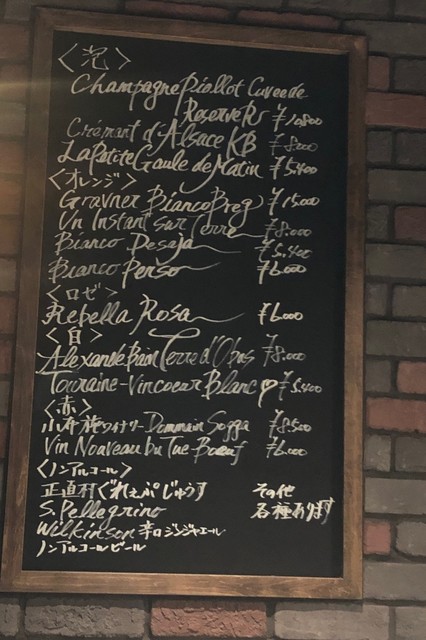 〈泡〉
Champagne Piollot Cuvee de
Reserve Rs ¥10800
Crémant d'Alsace KB ¥8000
La Petite Gaule de Matin ¥5.400
〈オレンジ〉
Gravner Bianco Breg ¥15000
Un Instant sur Terre ¥8.000
Bianco Pesaja ¥5.400
Bianco Perso ¥6.000
〈ロゼ〉
Rebella Rosa ¥6.000
〈白〉
Alexandre Bain Terre d'Obus ¥8.000
Touraine-Vincoeur Blanc ¥5.400
〈赤〉
小布施ワイナリー Dommain Sogga ¥8.500
Vin Nouveau bu Tue-Boeuf ¥6.000
〈ノンアルコール〉
正直村ぐれぇぷじゅうす その他
S.Pellegrino 各種あります
Wilkinson 辛口ジンジャエール
ノンアルコールビール